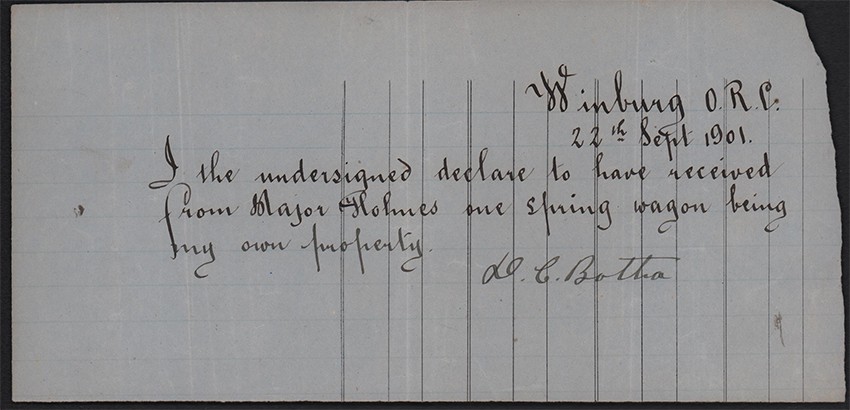 Winburg O.R.C.
22th Sept 1901.
I the undersigned declare to have received
from Major Holmes one spring wagon being
my own property.
D. C. Botha